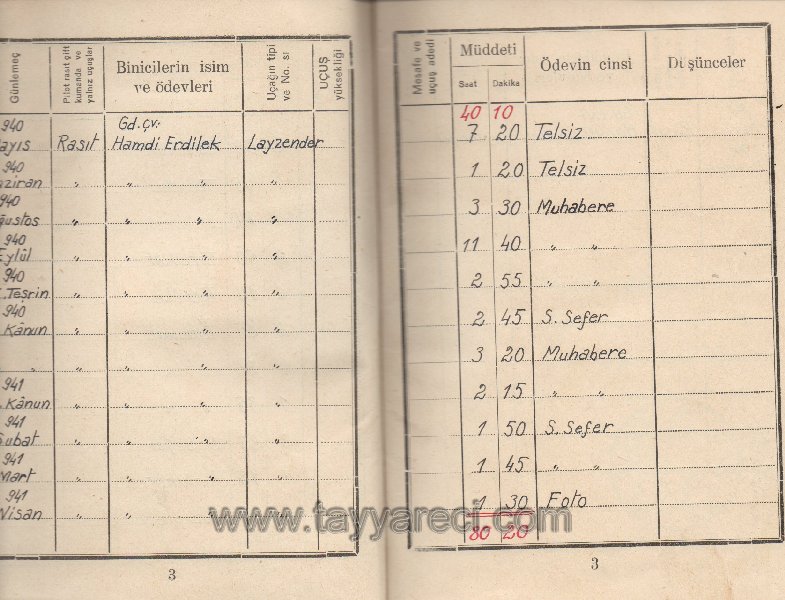 Günlemeç
Pilot rasıt çift
kumanda ve
yalnız uçuşlar
Binicilerin isim
ve ödevleri
Uçağın tipi
ve No. sı
UÇUŞ
yüksekliği
940
ayıs Rasıt Gd. çv. Hamdi Erdilek Layzender
940
aziran " " " "
940
ğustos " " " "
940
Eylûl " " " "
940
. Teşrin " " " "
940
. Kânun " " " "
" " " " "
941
. Kânun " " " "
941
Şubat " " " "
941
Mart " " " "
941
Nisan " " " "
3
Mesafe ve
uçuş adedi
Müddeti
Saat Dakika
Ödevin cinsi
Dişünceler
40 10
7 20 Telsiz
1 20 Telsiz
3 30 Muhabere
11 40 " "
2 55 " "
2 45 S. Sefer
3 20 Muhabere
2 15 " "
1 50 S. Sefer
1 45 " "
1 30 Foto
80 20
3
www.tayyareci.com